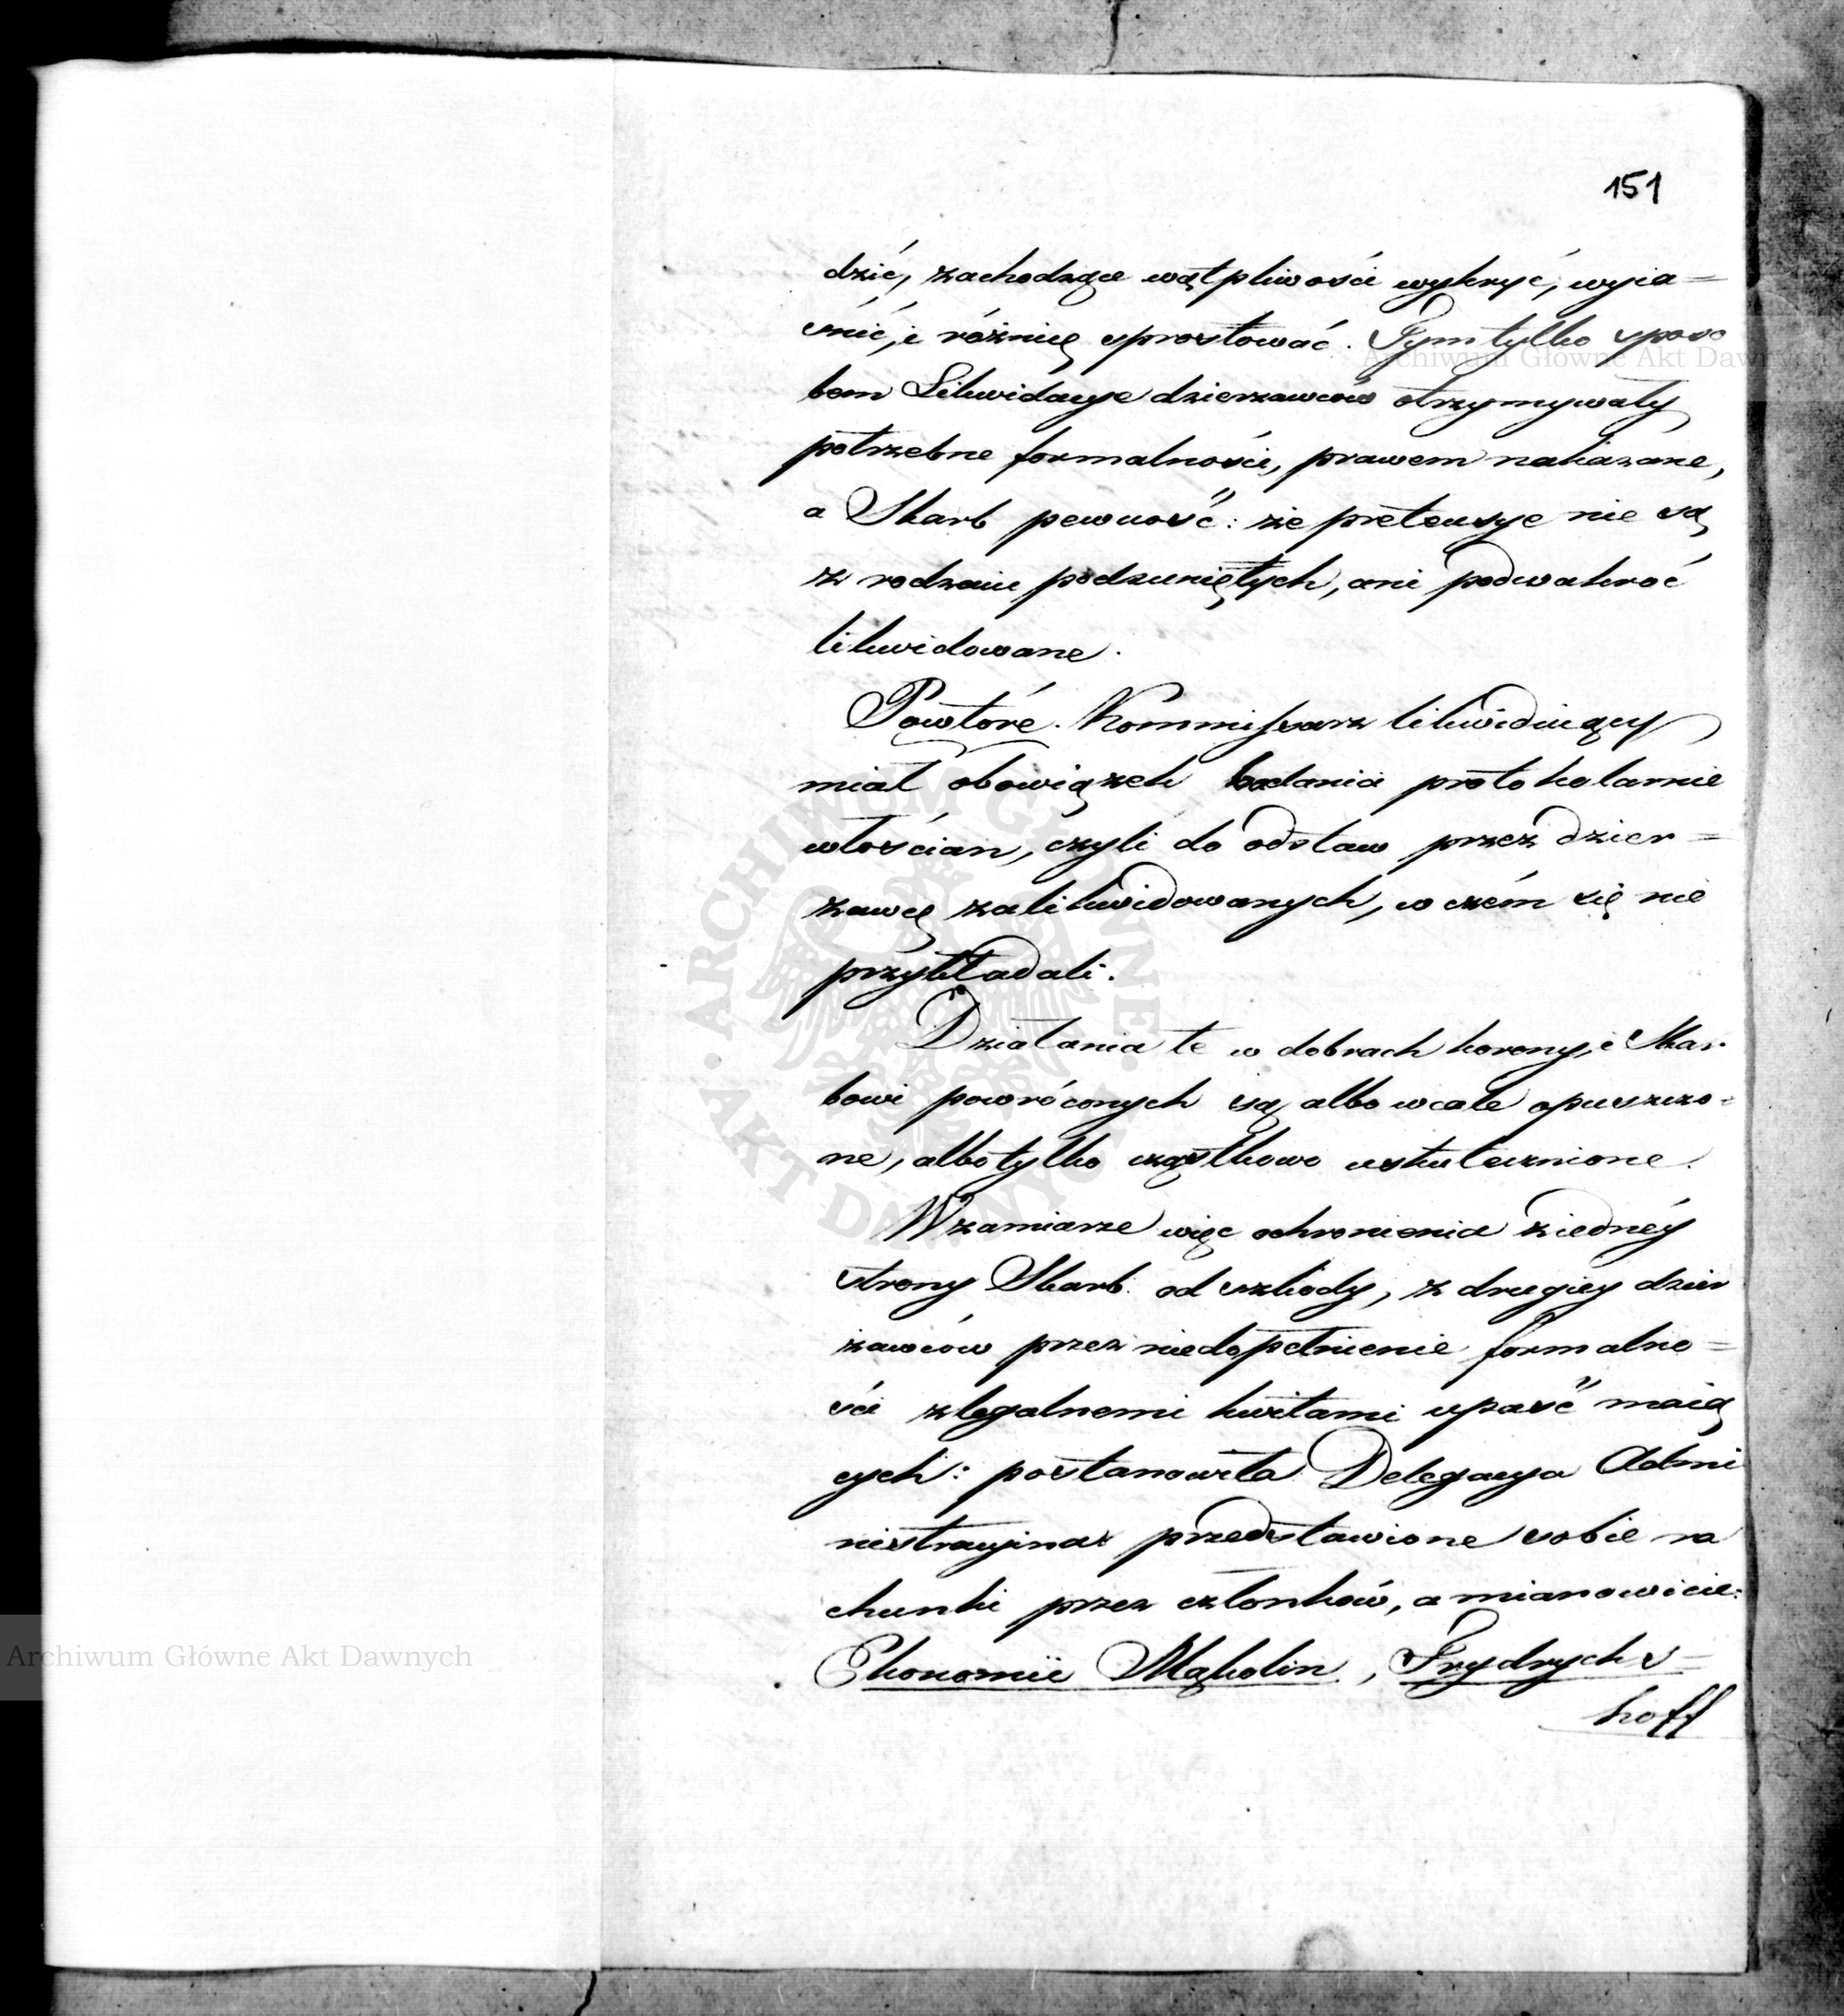 151
dzić, zachodzące wątpliwości wykryć, wyia=
śnić, i różnicę sprostować. Tym tylko sposo
bem Likwidacye dzierzawców otrzymywały
potrzebne formalności, prawem nakazane,
a Skarb pewność: że pretensye nie są
z rodzaiu podsuniętych, ani podwakroć
likwidowane.
Powtóre. Kommissarz likwiduiący
miał obowiązek badania protokolarnie
włościan, czyli do odstaw przez dzier=
zawcę zalikwidowanych, w czém się nie
przykładali.
Działania te w dobrach korony, i Skar
bowi powróconych są albo wcale opuszczo=
ne, albo tylko cząstkowo uskutecznione.
W zamiarze więc ochronienia z iednéy
strony Skarb od szkody, z drugiey dzier
żawców przez niedopełnienie formalno=
ści z legalnemi kwitami upaść maią
cych: postanowiła Delegacya Admi
nistracyina przedstawione sobie ra
chunki przez członków, a mianowicie:
Ekonomii Mąkolin, Frydrychs=
hoff
Archiwum Główne Akt Dawnych
Archiwum Główne Akt Dawnych
ARCHIWUM GŁÓWNE AKT DAWNYCH